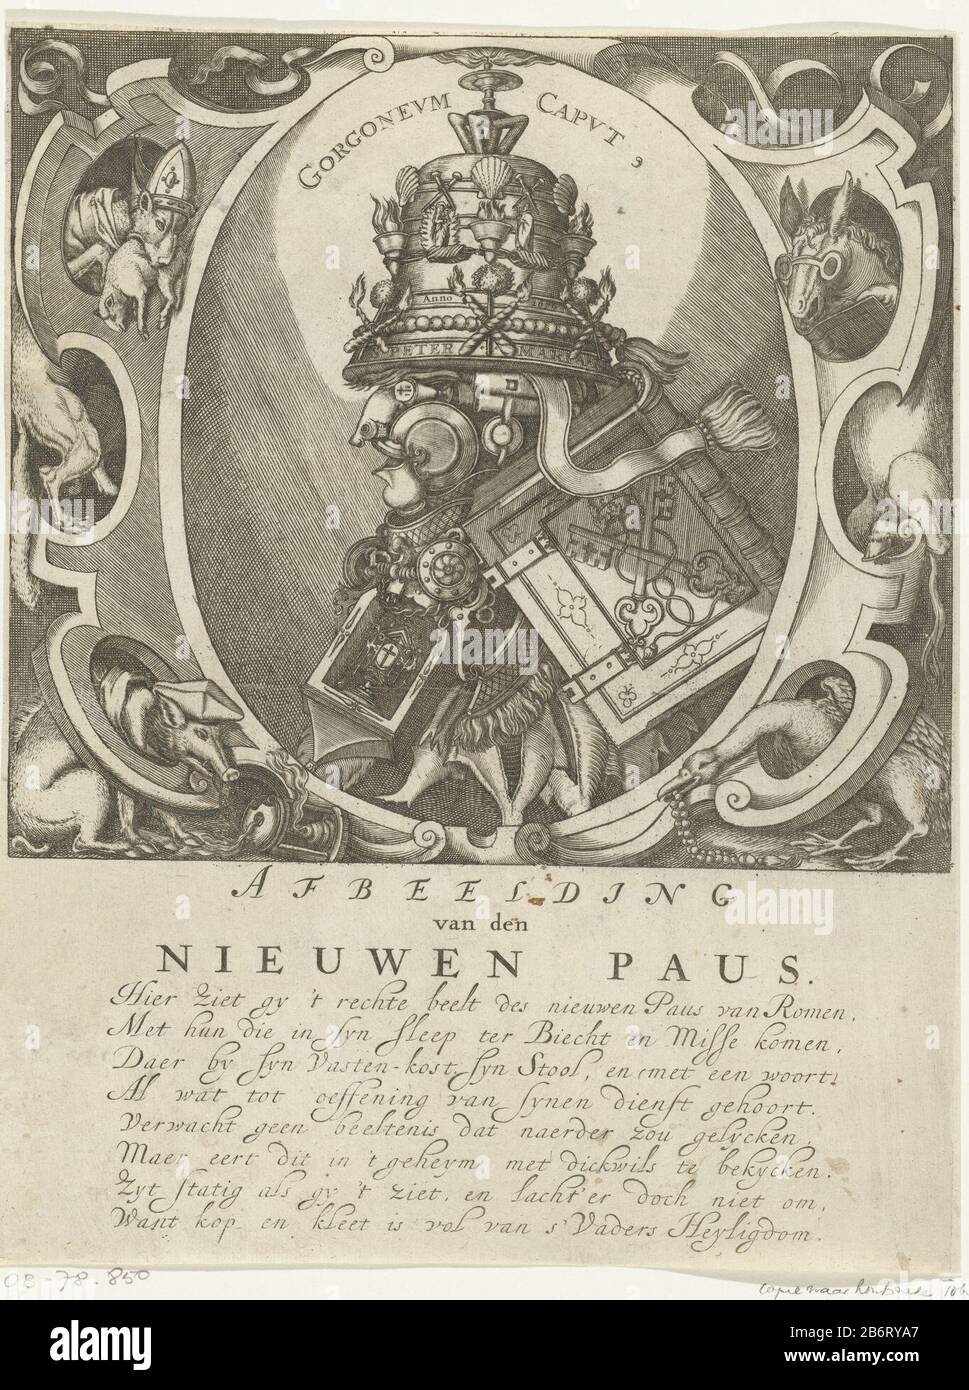 GORGONEVM CAPVT
Anno
PETER
AFBEELDING
van den
NIEUWEN PAUS.
Hier ziet gy 't rechte beelt des nieuwen Paus van Romen,
Met hun die in syn sleep ter Biecht en Misse komen,
Daer by syn Vasten-kost, syn Stool, en met een woort,
Al wat tot oeffening van synen dienst gehoort.
Verwacht geen beeltenis dat naerder zou gelycken,
Maer eert dit in 't geheym met dickwils te bekycken:
Zyt statig als gy 't ziet, en lacht'er doch niet om,
Want kop en kleet is vol van s'Vaders Heyligdom.
OB-78.850
alamy
www.alamy.com
Image ID: 2B6RYA7